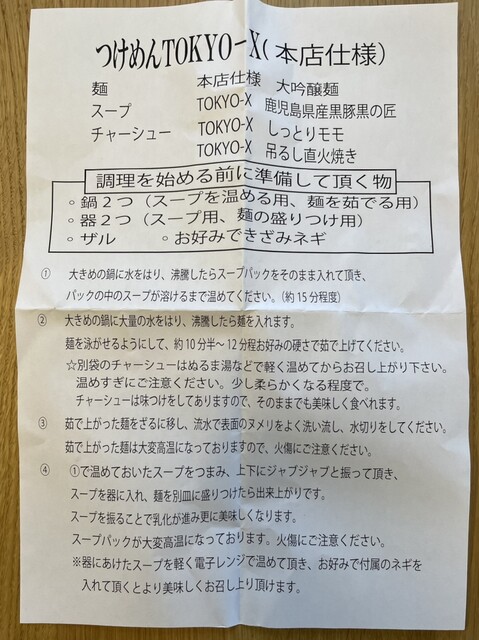 つけめんTOKYO－X(本店仕様)
麺　本店仕様　大吟醸麺
スープ　TOKYO-X　鹿児島県産黒豚黒の匠
チャーシュー　TOKYO-X　しっとりモモ
TOKYO-X　吊るし直火焼き
調理を始める前に準備して頂く物
◦鍋２つ（スープを温める用、麺を茹でる用）
◦器２つ（スープ用、麺の盛りつけ用）
◦ザル　◦お好みできざみネギ
①　大きめの鍋に水をはり、沸騰したらスープパックをそのまま入れて頂き、
パックの中のスープが溶けるまで温めてください。（約15分程度）
②　大きめの鍋に大量の水をはり、沸騰したら麺を入れます。
麺を泳がせるようにして、約10分半～12分程お好みの硬さで茹で上げてください。
☆別袋のチャーシューはぬるま湯などで軽く温めてからお召し上がり下さい。
温めすぎにご注意ください。少し柔らかくなる程度で。
チャーシューは味つけをしてありますので、そのままでも美味しく食べれます。
③　茹で上がった麺をざるに移し、流水で表面のヌメリをよく洗い流し、水切りをしてください。
茹で上がった麺は大変高温になっておりますので、火傷にご注意ください。
④　①で温めておいたスープをつまみ、上下にジャブジャブと振って頂き、
スープを器に入れ、麺を別皿に盛りつけたら出来上がりです。
スープを振ることで乳化が進み更に美味しくなります。
スープパックが大変高温になっております。火傷にご注意ください。
※器にあけたスープを軽く電子レンジで温めて頂き、お好みで付属のネギを
入れて頂くとより美味しくお召し上り頂けます。